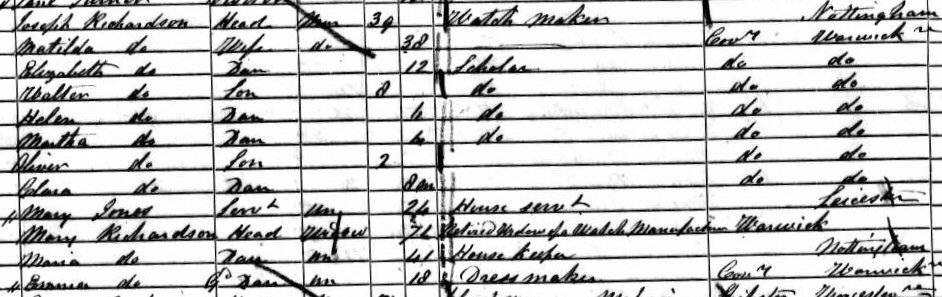 Joseph Richardson Head Mar 39 Watch maker Nottingham
Matilda do Wife do 38 Covy Warwick
Elizabeth do Dau 12 Scholar do do
Walter do Son 8 do do do
Helen do Dau 6 do do do
Martha do Dau 4 do do do
Oliver do Son 2 do do
Clara do Dau 8m do do
Mary Jones Servt un 24 House servt Leicester
Mary Richardson Head Widow 72 Retired Widow of a Watch Manufacturer Warwick
Maria do Dau un 41 House keeper Nottingham
Emma do G Dau un 18 Dress maker Covy Warwick